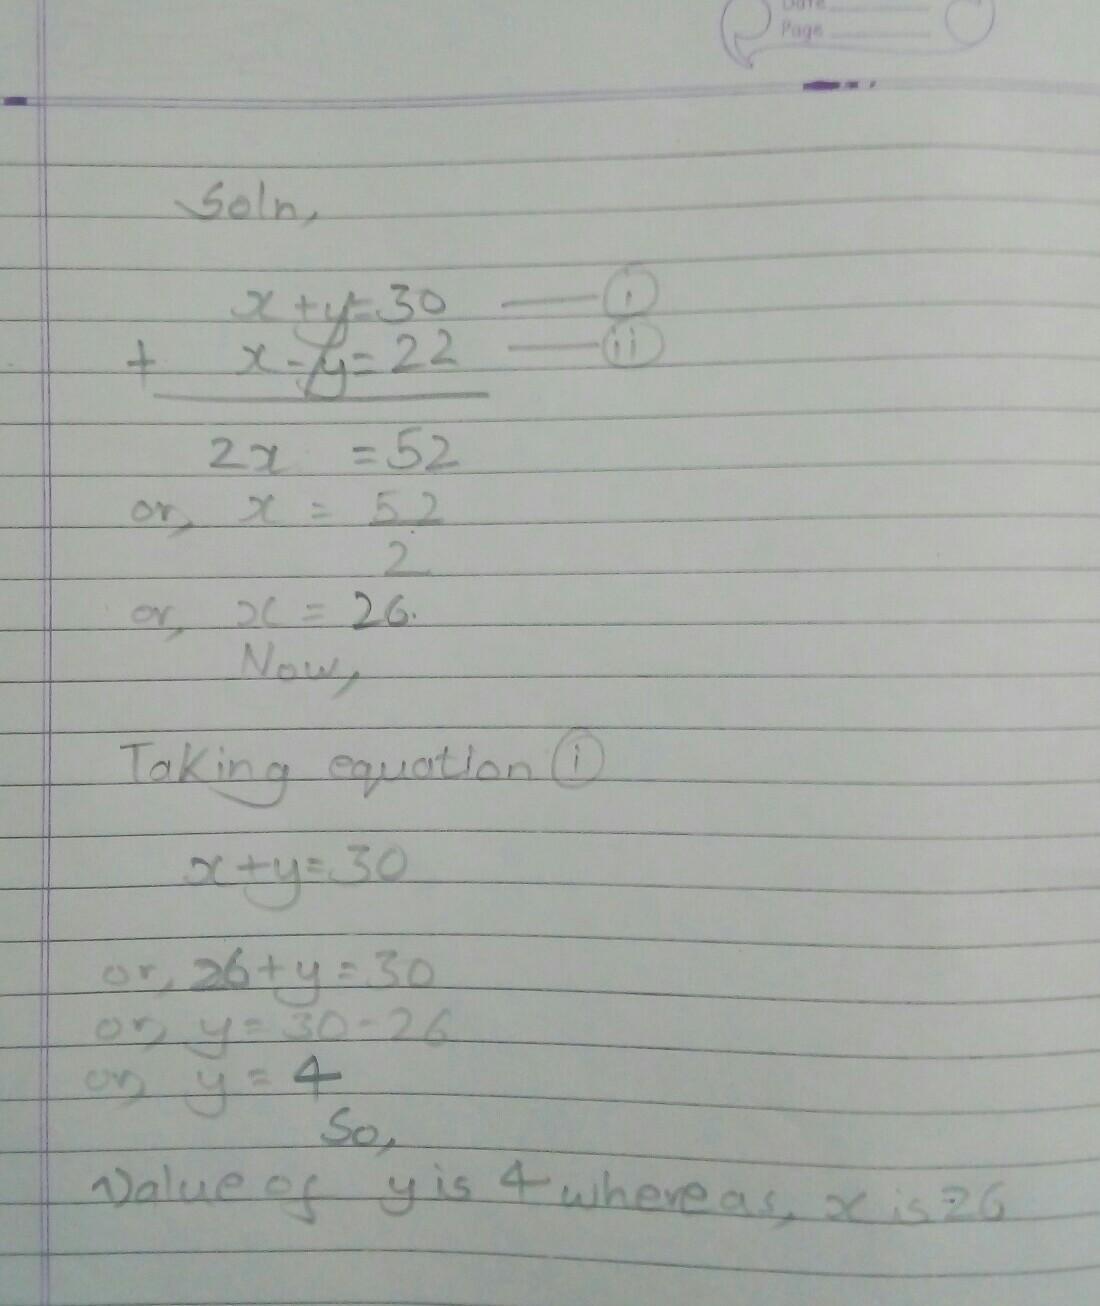 Date
Page
Soln,
x+y=30 —— (i)
+ x-y=22 —— (ii)
2x =52
or, x = 52
2
or, x = 26.
Now,
Taking equation (i)
x+y=30
or, 26+y=30
or, y=30-26
or, y=4
So,
Value of y is 4 whereas, x is 26